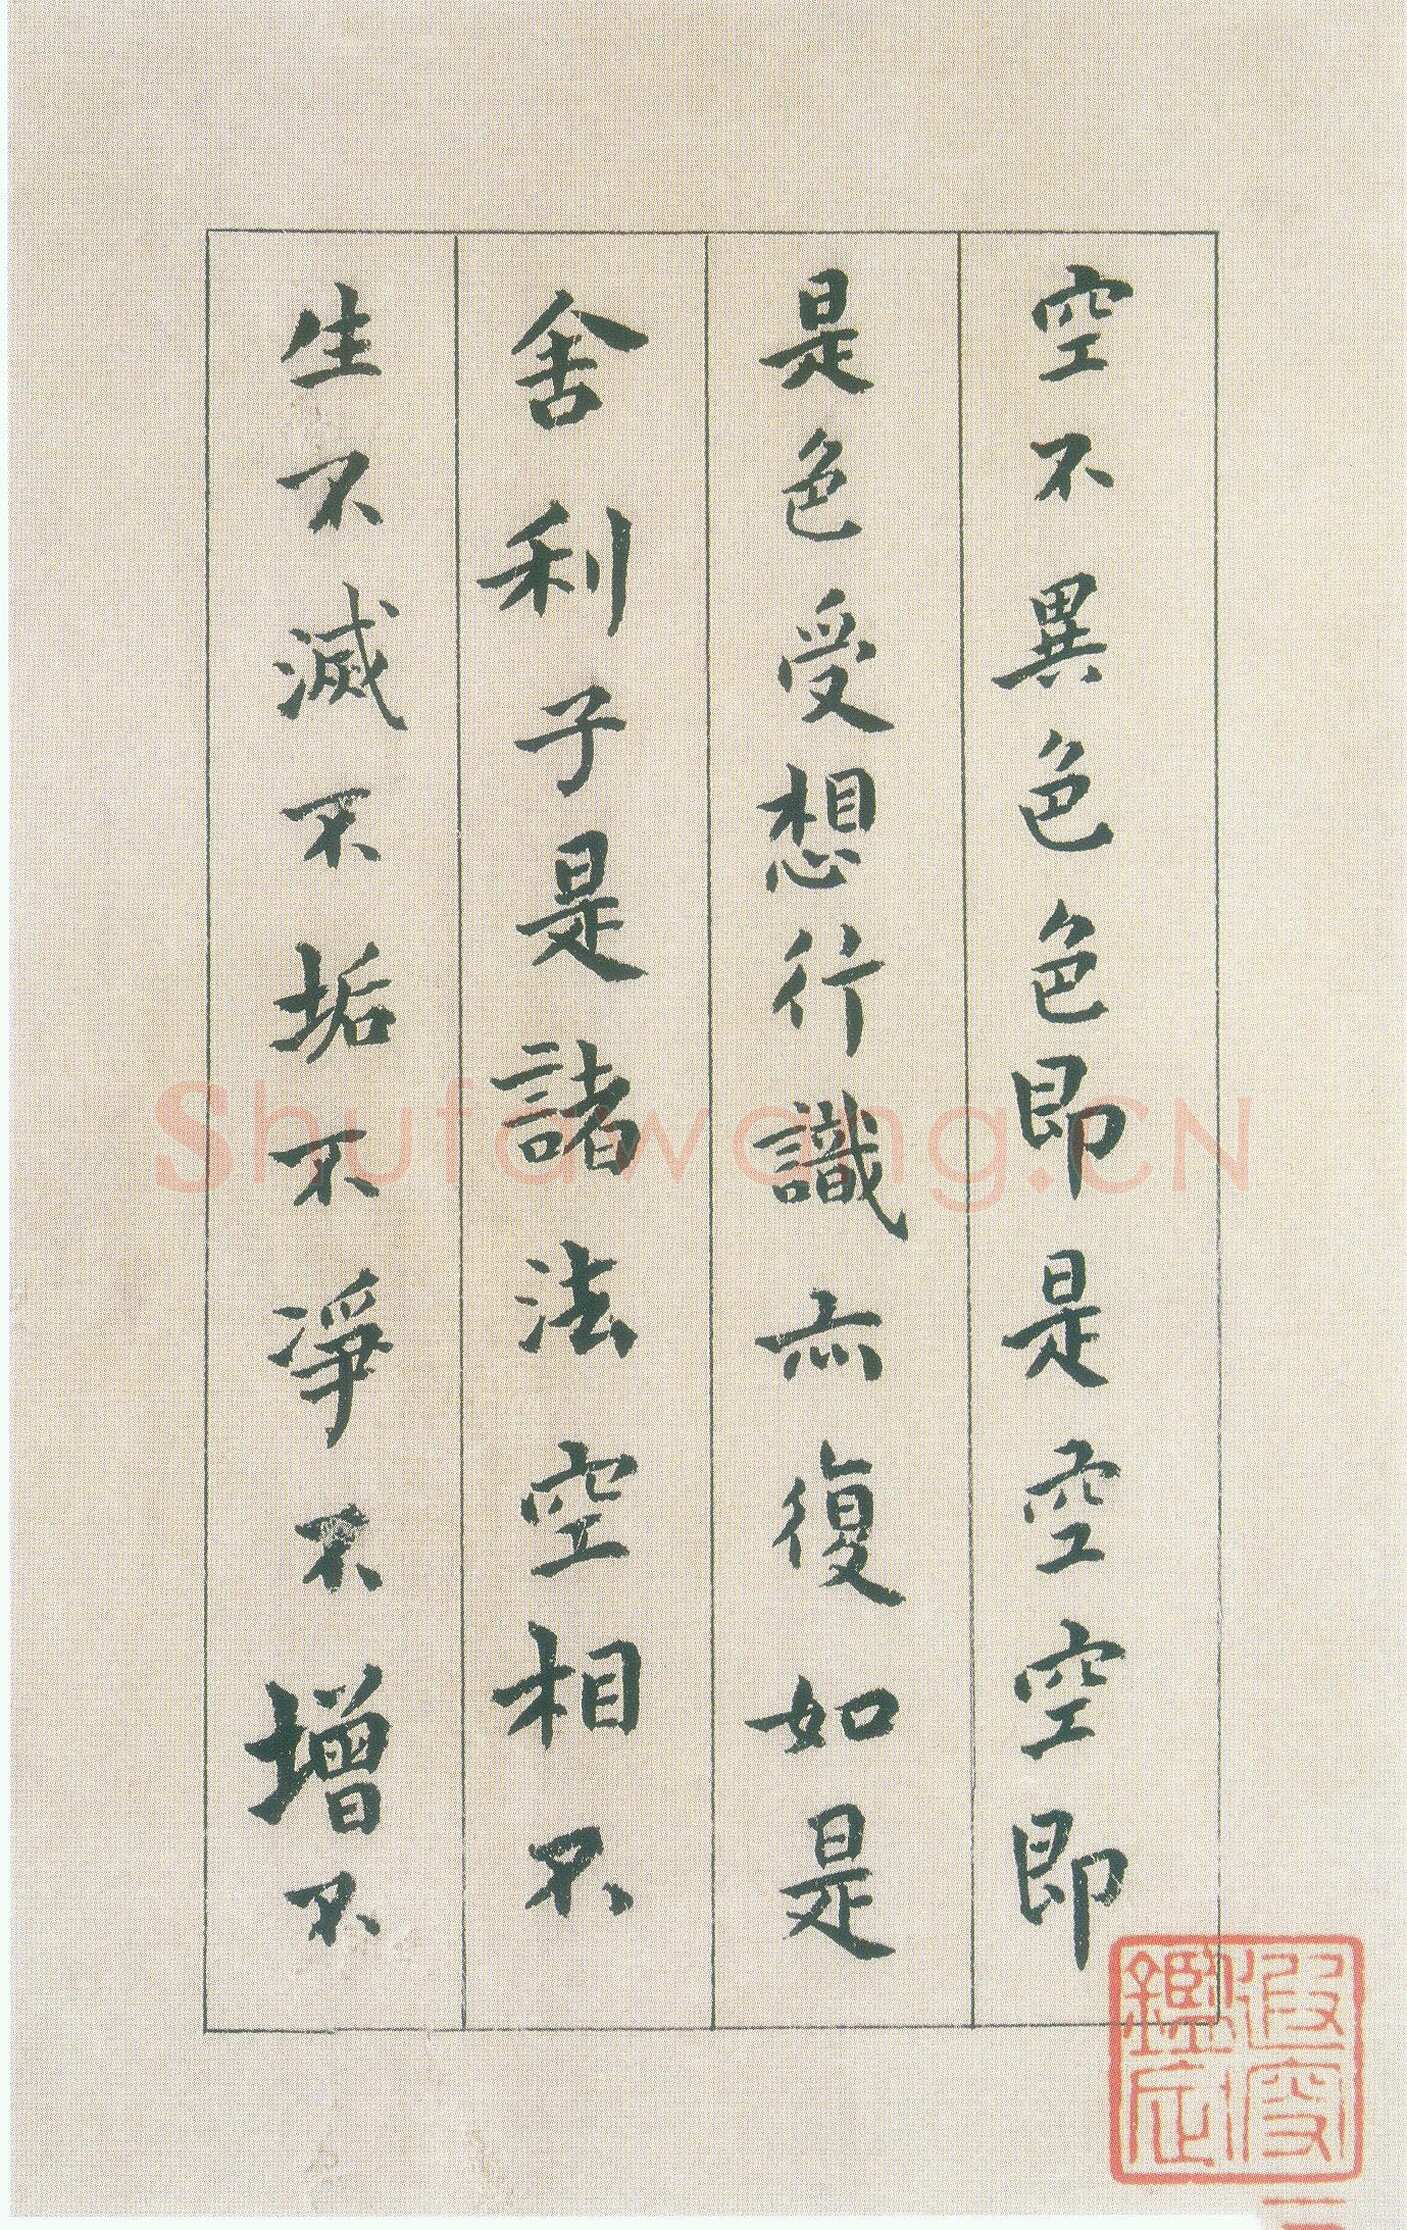 空不異色色即是空空即
是色受想行識亦復如是
舍利子是諸法空相不
生不滅不垢不淨不增不
Shufawang.CN